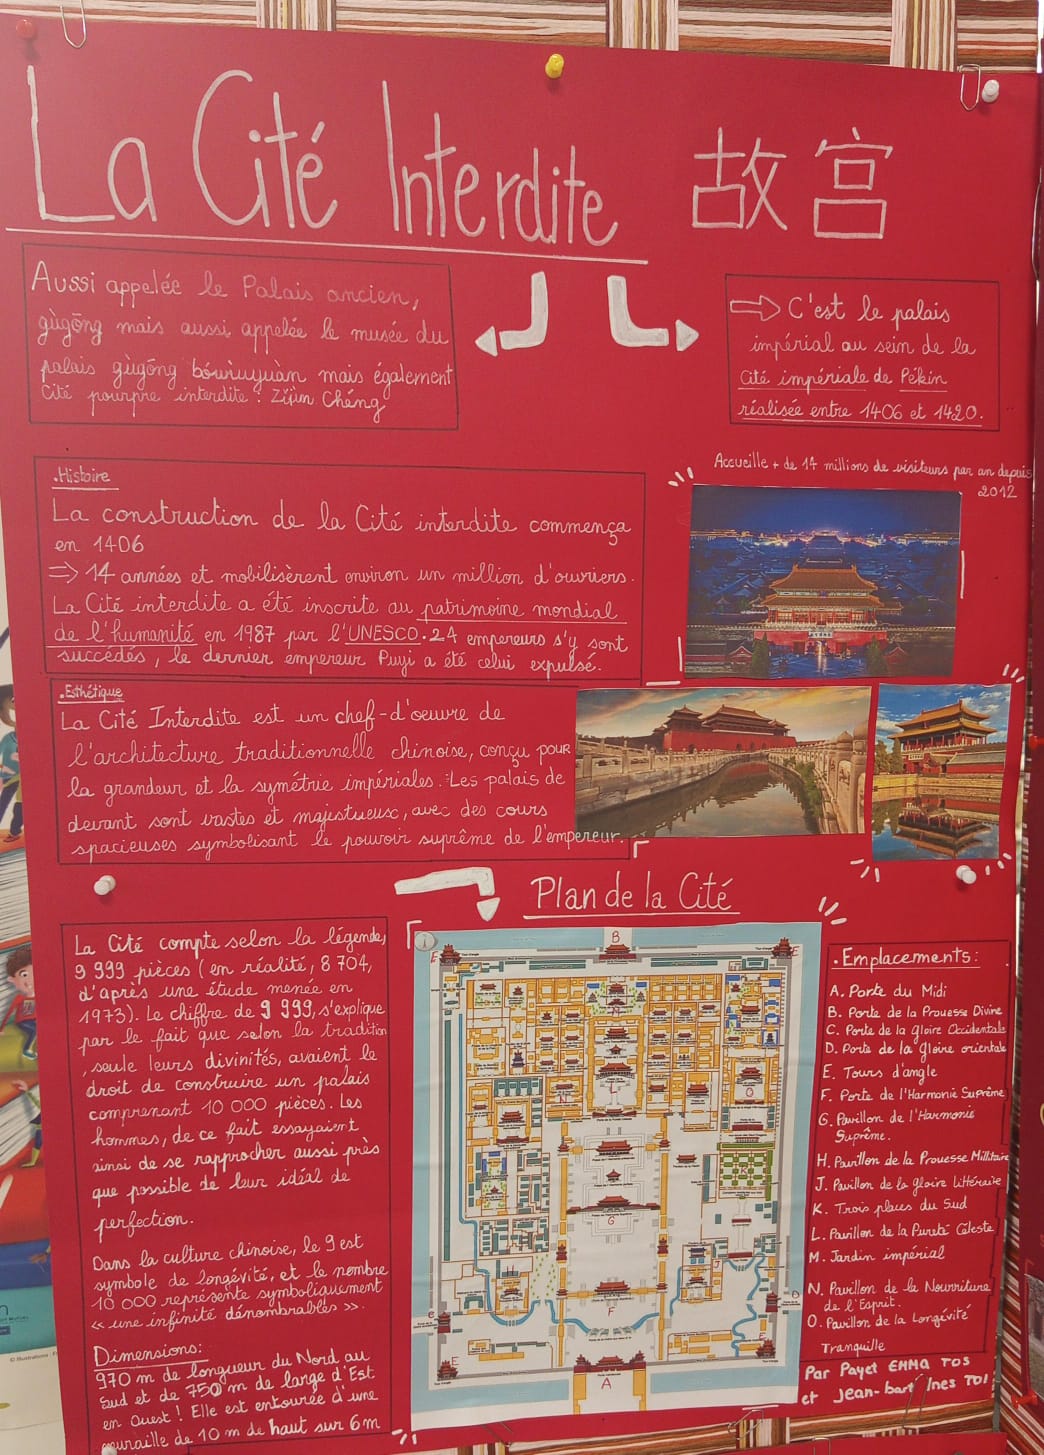 La Cité Interdite 故宫
Aussi appelée le Palais ancien,
gùgōng mais aussi appelée le musée du
palais gùgōng bówùuyuàn mais également
Cité pourpre interdite : Zǐjìn Chéng
C'est le palais
impérial au sein de la
Cité impériale de Pékin
réalisée entre 1406 et 1420.
Accueille + de 14 millions de visiteurs par an depuis
2012
.Histoire
La construction de la Cité interdite commença
en 1406
=> 14 années et mobilisèrent environ un million d'ouvriers.
La Cité interdite a été inscrite au patrimoine mondial
de l'humanité en 1987 par l'UNESCO. 24 empereurs s'y sont
succédés, le dernier empereur Puyi a été celui expulsé.
.Esthétique
La Cité Interdite est un chef-d'oeuvre de
l'architecture traditionnelle chinoise, conçu pour
la grandeur et la symétrie impériales. Les palais de
devant sont vastes et majestueux, avec des cours
spacieuses symbolisant le pouvoir suprême de l'empereur.
Plan de la Cité
La Cité compte selon la légende,
9 999 pièces (en réalité, 8 704,
d'après une étude menée en
1973). Le chiffre de 9 999, s'explique
par le fait que selon la tradition
, seule leurs divinités, avaient le
droit de construire un palais
comprenant 10 000 pièces. Les
hommes, de ce fait essayaient
ainsi de se rapprocher aussi près
que possible de leur idéal de
perfection.
Dans la culture chinoise, le 9 est
symbole de longévité, et le nombre
10 000 représente symboliquement
« une infinité dénombrables ».
Dimensions:
970 m de longueur du Nord au
Sud et de 750 m de large d'Est
en Ouest ! Elle est entourée d'une
muraille de 10 m de haut sur 6 m
B
E
E
M
L
N
O
K
G
J
C
D
F
E
E
A
. Emplacements:
A. Porte du Midi
B. Porte de la Prouesse Divine
C. Porte de la gloire Occidentale
D. Porte de la gloire orientale
E. Tours d'angle
F. Porte de l'Harmonie Suprême
G. Pavillon de l'Harmonie
Suprême.
H. Pavillon de la Prouesse Militaire
J. Pavillon de la gloire Littéraire
K. Trois places du Sud
L. Pavillon de la Pureté Céleste
M. Jardin impérial
N. Pavillon de la Nourriture
de l'Esprit.
O. Pavillon de la Longévité
Tranquille
Par Payet EMMA TO5
et Jean-bart Ines TO1